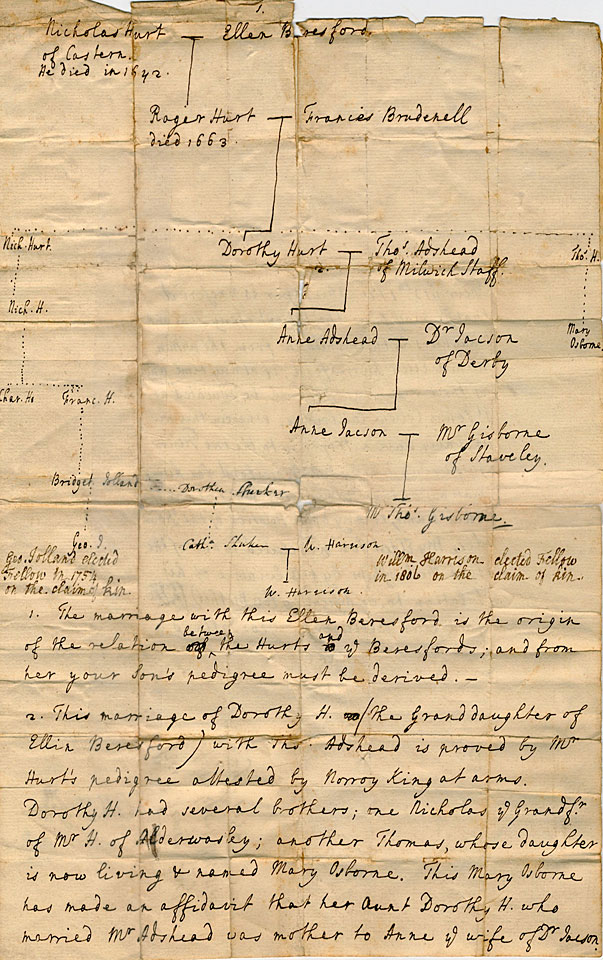 1.
Nicholas Hurt Ellen Beresford.
of Castern.
He died in 1642.
Roger Hurt Frances Brudenell
died 1663.
Nich. Hurt. Dorothy Hurt Thos. Adshead Thos. H.
2. of Milwich Staff.
Nich. H. Mary
Osborne.
Anne Adshead Dr Jacson
of Derby
Char. H. Franc. H.
Anne Jacson Mr Gisborne
of Staveley.
Bridget Jolland Dorothea
Mr Thos. Gisborne.
Geo. J. Cath. W. Harrison
Geo. Jolland elected Willm Harrison elected Fellow
Fellow in 175 in 1806 on the claim of kin.
on the claim kin. W. Harrison
1. The marriage with this Ellen Beresford is the origin
of the relation between the Hurts and ye Beresfords; and from
her your Son's pedigree must be derived. —
2. This marriage of Dorothy H. (the Granddaughter of
Ellin Beresford) with Thos. Adshead is proved by Mr
Hurt's pedigree attested by Norroy King at arms.
Dorothy H. had several brothers; one Nicholas ye Grandfr
of Mr H. of Alderwasley; another Thomas, whose daughter
is now living & named Mary Osborne. This Mary Osborne
has made an affidavit that her Aunt Dorothy H. who
married Mr Adshead was mother to Anne ye wife of Dr Jacson